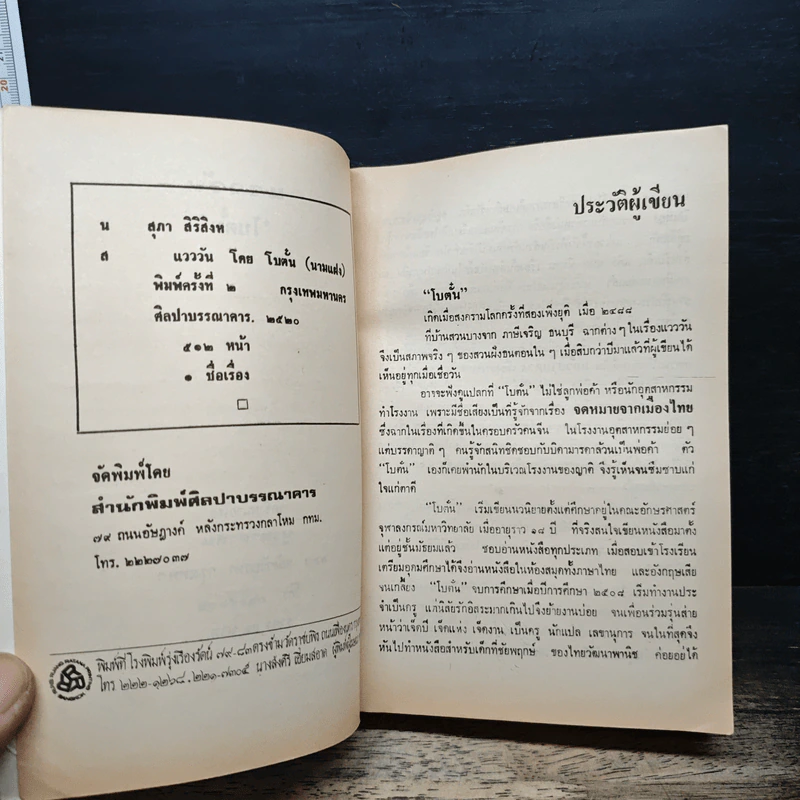 น สุภา สิริสิงห
ส แวววัน โดย โบตั๋น (นามแฝง)
พิมพ์ครั้งที่ ๒ กรุงเทพมหานคร
ศิลปาบรรณาคาร. ๒๕๒๐
๕๑๒ หน้า
๑ ชื่อเรื่อง
จัดพิมพ์โดย
สำนักพิมพ์ศิลปาบรรณาคาร
๗๙ ถนนอัษฎางค์ หลังกระทรวงกลาโหม กทม.
โทร. ๒๒๒๗๐๓๗
พิมพ์ที่ โรงพิมพ์รุ่งเรืองรัตน์ ๗๙-๘๓ ตรงข้ามวัดราชบพิธ ถนนเฟื่องนคร
โทร ๒๒๒-๑๒๖๘, ๒๒๑-๗๓๐๕ นางส่งศรี
ประวัติผู้เขียน
“โบตั๋น”
เกิดเมื่อสงครามโลกครั้งที่สองเพิ่งยุติ เมื่อ ๒๔๘๘
ที่บ้านสวนบางจาก ภาษีเจริญ ธนบุรี ฉากต่าง ๆ ในเรื่องแวววัน
จึงเป็นสภาพจริง ๆ ของสวนฝั่งธนตอนใน ๆ เมื่อสิบกว่าปีมาแล้วที่ผู้เขียนได้
เห็นอยู่ทุกเมื่อเชื่อวัน
อาจจะฟังดูแปลกที่ “โบตั๋น” ไม่ใช่ลูกพ่อค้า หรือนักอุตสาหกรรม
ทำโรงงาน เพราะมีชื่อเสียงเป็นที่รู้จักจากเรื่อง จดหมายจากเมืองไทย
ซึ่งฉากในเรื่องที่เกิดขึ้นในครอบครัวคนจีน ในโรงงานอุตสาหกรรมย่อย ๆ
แต่บรรดาญาติ ๆ คนรู้จักสนิทชิดชอบกับบิดามารดาล้วนเป็นพ่อค้า ตัว
“โบตั๋น” เองก็เคยพำนักในบริเวณโรงงานของญาติ จึงรู้เห็นจนซึมซาบแก่
ใจแก่ตาดี
“โบตั๋น” เริ่มเขียนนวนิยายตั้งแต่ศึกษาอยู่ในคณะอักษรศาสตร์
จุฬาลงกรณ์มหาวิทยาลัย เมื่ออายุราว ๑๘ ปี ที่จริงสนใจเขียนหนังสือมาตั้ง
แต่อยู่ชั้นมัธยมแล้ว ชอบอ่านหนังสือทุกประเภท เมื่อสอบเข้าโรงเรียน
เตรียมอุดมศึกษาได้จึงอ่านหนังสือในห้องสมุดทั้งภาษาไทย และอังกฤษเสีย
จนเกลี้ยง “โบตั๋น” จบการศึกษาเมื่อปีการศึกษา ๒๕๐๘ เริ่มทำงานประ
จำเป็นครู แต่นิสัยรักอิสระมากเกินไปจึงย้ายงานบ่อย จนเพื่อนร่วมรุ่นส่าย
หน้าว่าเจ็ดปี เจ็ดแห่ง เจ็ดงาน เป็นครู นักแปล เลขานุการ จนในที่สุดจึง
หันไปทำหนังสือสำหรับเด็กที่ชัยพฤกษ์ ของไทยวัฒนาพานิช ค่อยอยู่ได้